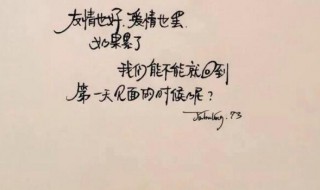 友情也好.爱情也罢.
如果累了
我们能不能就回到
第一天见面的时候呢?